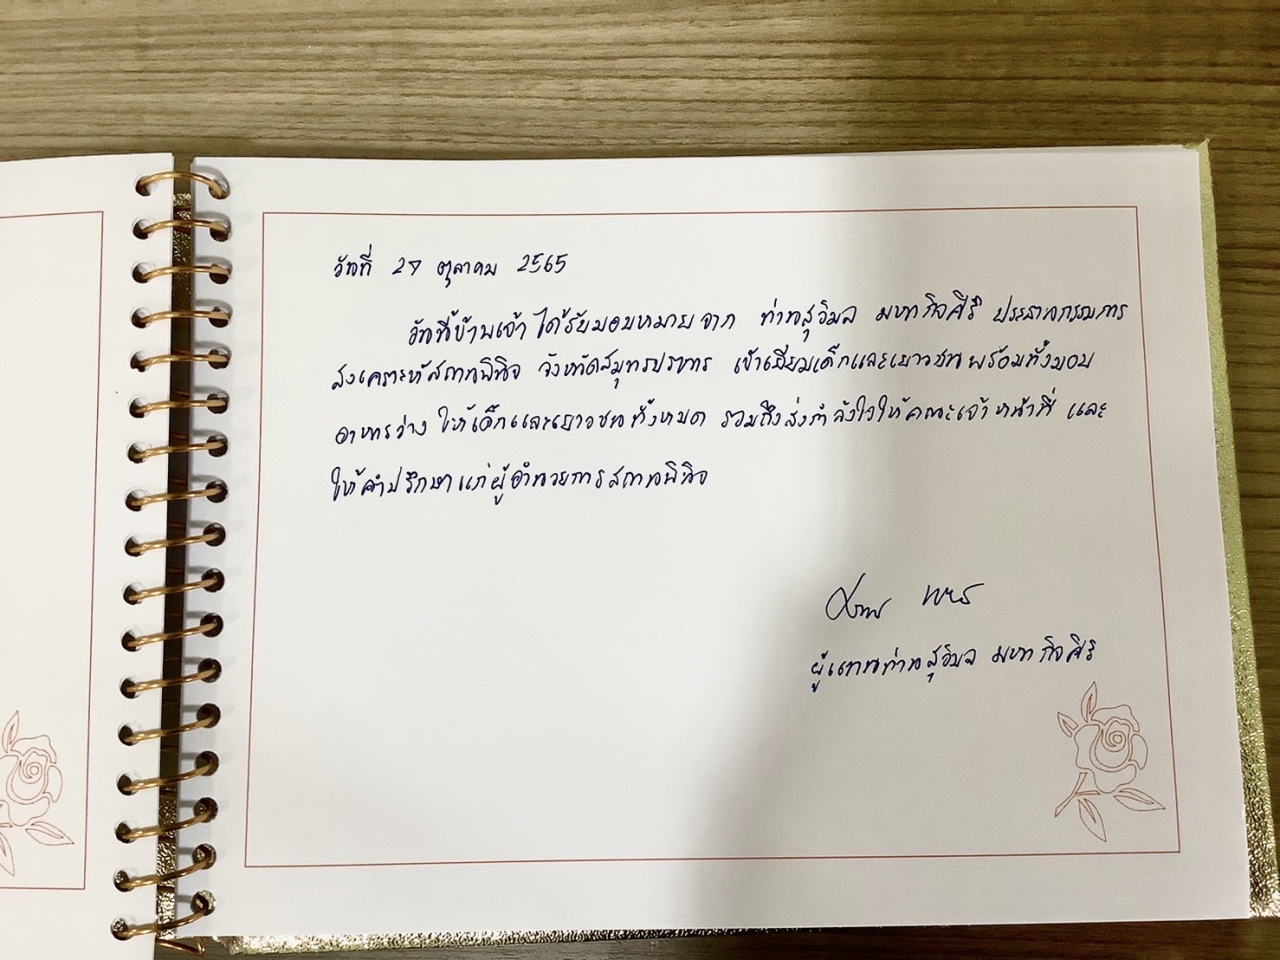 วันที่ 27 ตุลาคม 2565
วันนี้ข้าพเจ้า ได้รับมอบหมายจาก ท่านสุวิมล มหากิจศิริ ประธานกรรมการ
สงเคราะห์สถานพินิจ จังหวัดสมุทรปราการ เข้าเยี่ยมเด็กและเยาวชนพร้อมทั้งมอบ
อาหารว่าง ให้เด็กและเยาวชนทั้งหมด รวมถึงส่งกำลังใจให้คณะเจ้าหน้าที่ และ
ให้คำปรึกษาแก่ผู้อำนวยการสถานพินิจ
ผู้แทนท่านสุวิมล มหากิจศิริ